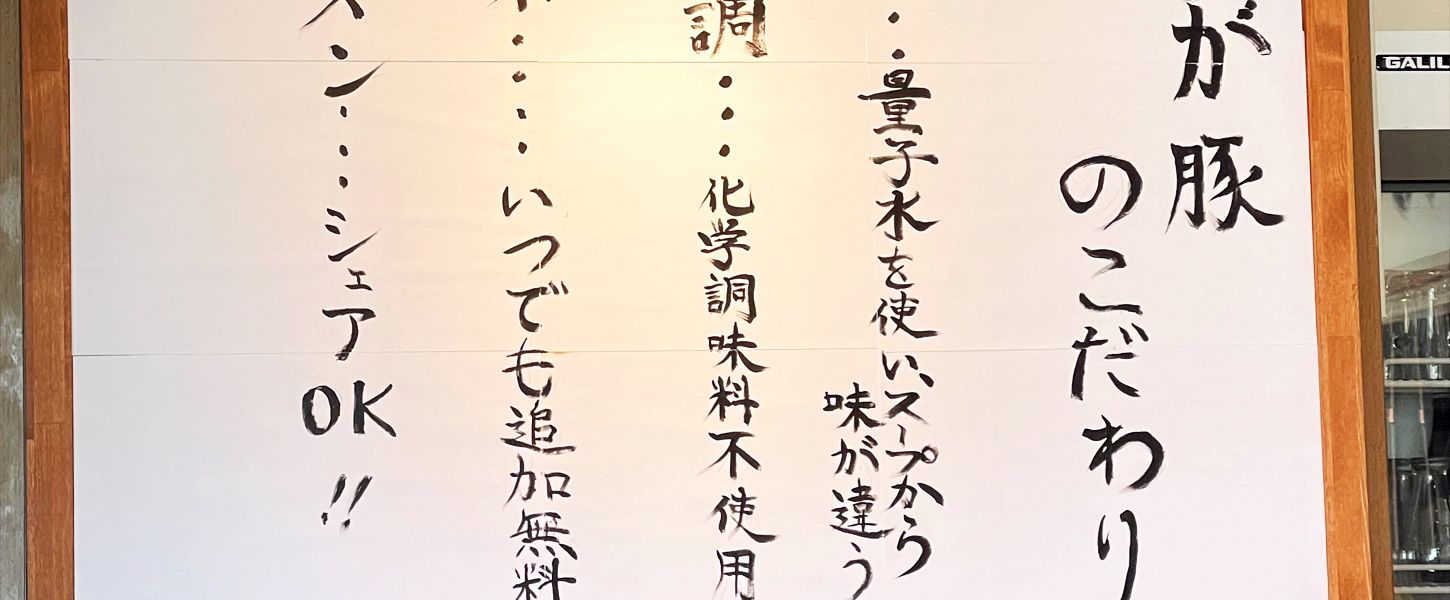 が豚
のこだわり
・・量子水を使い、スープから
味が違う
調・・・化学調味料不使用
・・・・いつでも追加無料
スン・・・・シェアOK!!
GALIL